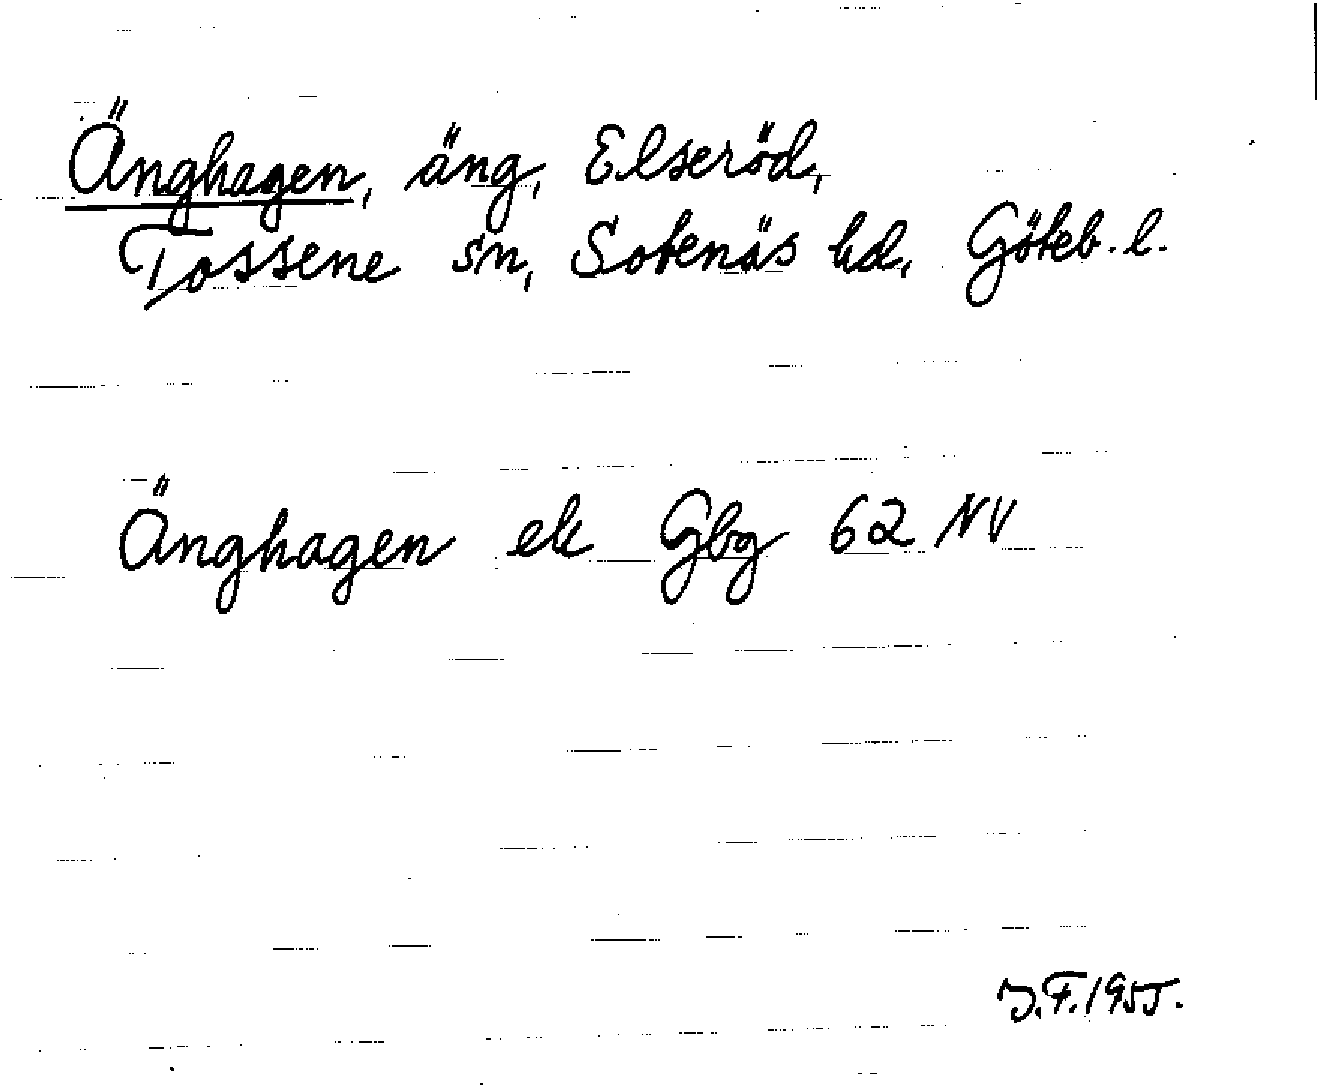 Änghagen, äng, Elseröd,
Tossene sn, Sotenäs hd, Göteb. l.
Änghagen ek Gbg 62 NV
J.F. 1955.